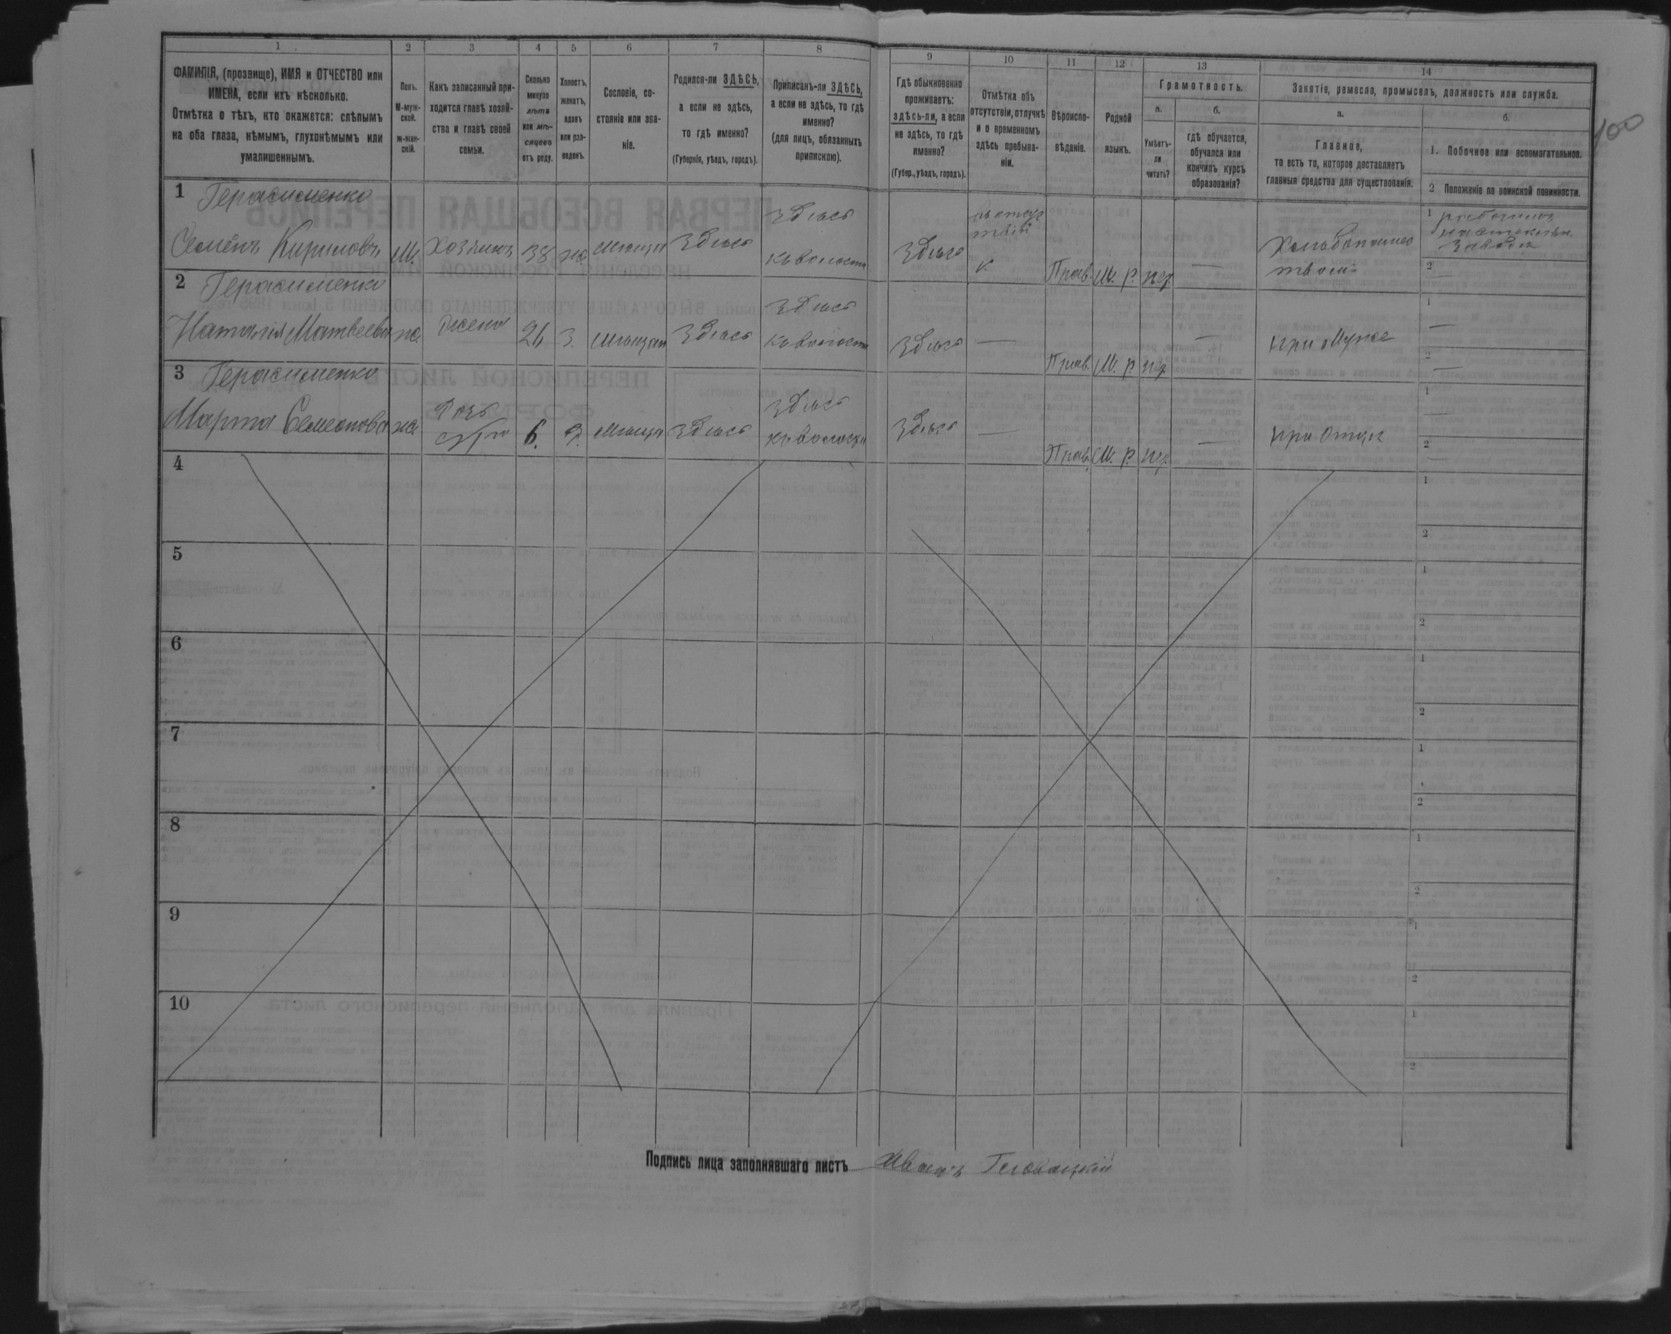 1
2
3
4
5
6
7
8
9
10
11
12
13
14
ФАМИЛІЯ, (прозвище), ИМЯ и ОТЧЕСТВО или
ИМЕНА, если ихъ нѣсколько.
Отмѣтка о тѣхъ, кто окажется: слѣпымъ
на оба глаза, нѣмымъ, глухонѣмымъ или
умалишеннымъ.
Полъ.
М-муж-
ской.
Ж-жен-
скій.
Какъ записанный при-
ходится главѣ хозяй-
ства и главѣ своей
семьи.
Сколько
минуло
лѣтъ
или мѣ-
сяцевъ
отъ роду.
Холостъ,
женатъ,
вдовъ
или раз-
веденъ.
Сословіе, со-
стояніе или зва-
ніе.
Родился-ли ЗДѢСЬ,
а если не здѣсь,
то гдѣ именно?
(Губернія, уѣздъ, городъ).
Приписанъ-ли ЗДѢСЬ,
а если не здѣсь, то гдѣ
именно?
(для лицъ, обязанныхъ
припискою).
Гдѣ обыкновенно
проживаетъ:
здѣсь-ли, а если
не здѣсь, то гдѣ
именно?
(Губер., уѣздъ, городъ).
Отмѣтка объ
отсутствіи, отлучкѣ
и о временномъ
здѣсь пребыва-
ніи.
Вѣроиспо-
вѣданіе.
Родной
языкъ.
Грамотность.
а.
Умѣетъ-
ли
читать?
б.
гдѣ обучается,
обучался или
кончилъ курсъ
образованія?
Занятіе, ремесло, промыселъ, должность или служба.
а.
Главное,
то есть то, которое доставляетъ
главныя средства для существованія.
б.
1. Побочное или вспомогательное.
2 Положеніе по воинской повинности.
100
1 Герасименко
Семёнъ Кириловъ М. Хозяинъ 38 ж. Здѣсь
Здѣсь
къ волости
Здѣсь
Прав. М. р. нѣт —
1
2 —
2 Герасименко
Наталія Матвеева ж жена 26 З. Здѣсь
Здѣсь
къ волости
Здѣсь — Прав. М. р. нѣт — при Мужѣ
1 —
2 —
3 Герасименко
Марта Семенова ж
Дочь
6. Д. Здѣсь
Здѣсь
къ волости
Здѣсь — Прав. М. р. нѣт — при Отцѣ
1 —
2 —
4
1
2
5
1
2
6
1
2
7
1
2
8
1
2
9
1
2
10
1
2
Подпись лица заполнявшаго листъ Иванъ